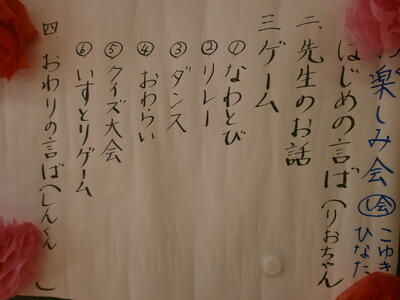 お楽しみ会 司会 こゆき
ひなた
はじめの言ば(りおちゃん
二、先生のお話
三 ゲーム
①なわとび
②リレー
③ダンス
④おわらい
⑤クイズ大会
⑥いすとりゲーム
四、おわりの言ば(しんくん )